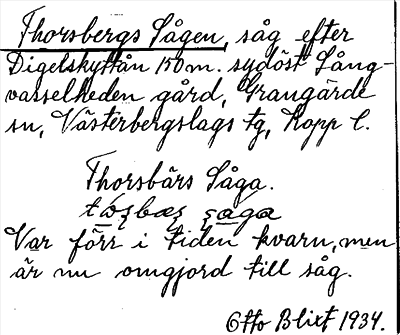 Thorsbergs Sågen, såg efter
Digelskyttån 150 m. sydöst Lång-
vasselheden gård, Grangärde
sn, Västerbergslags tg, Kopp l.
Thorsbärs Såga.
Var förr i tiden kvarn, men
är nu omgjord till såg.
Otto Blixt 1934.